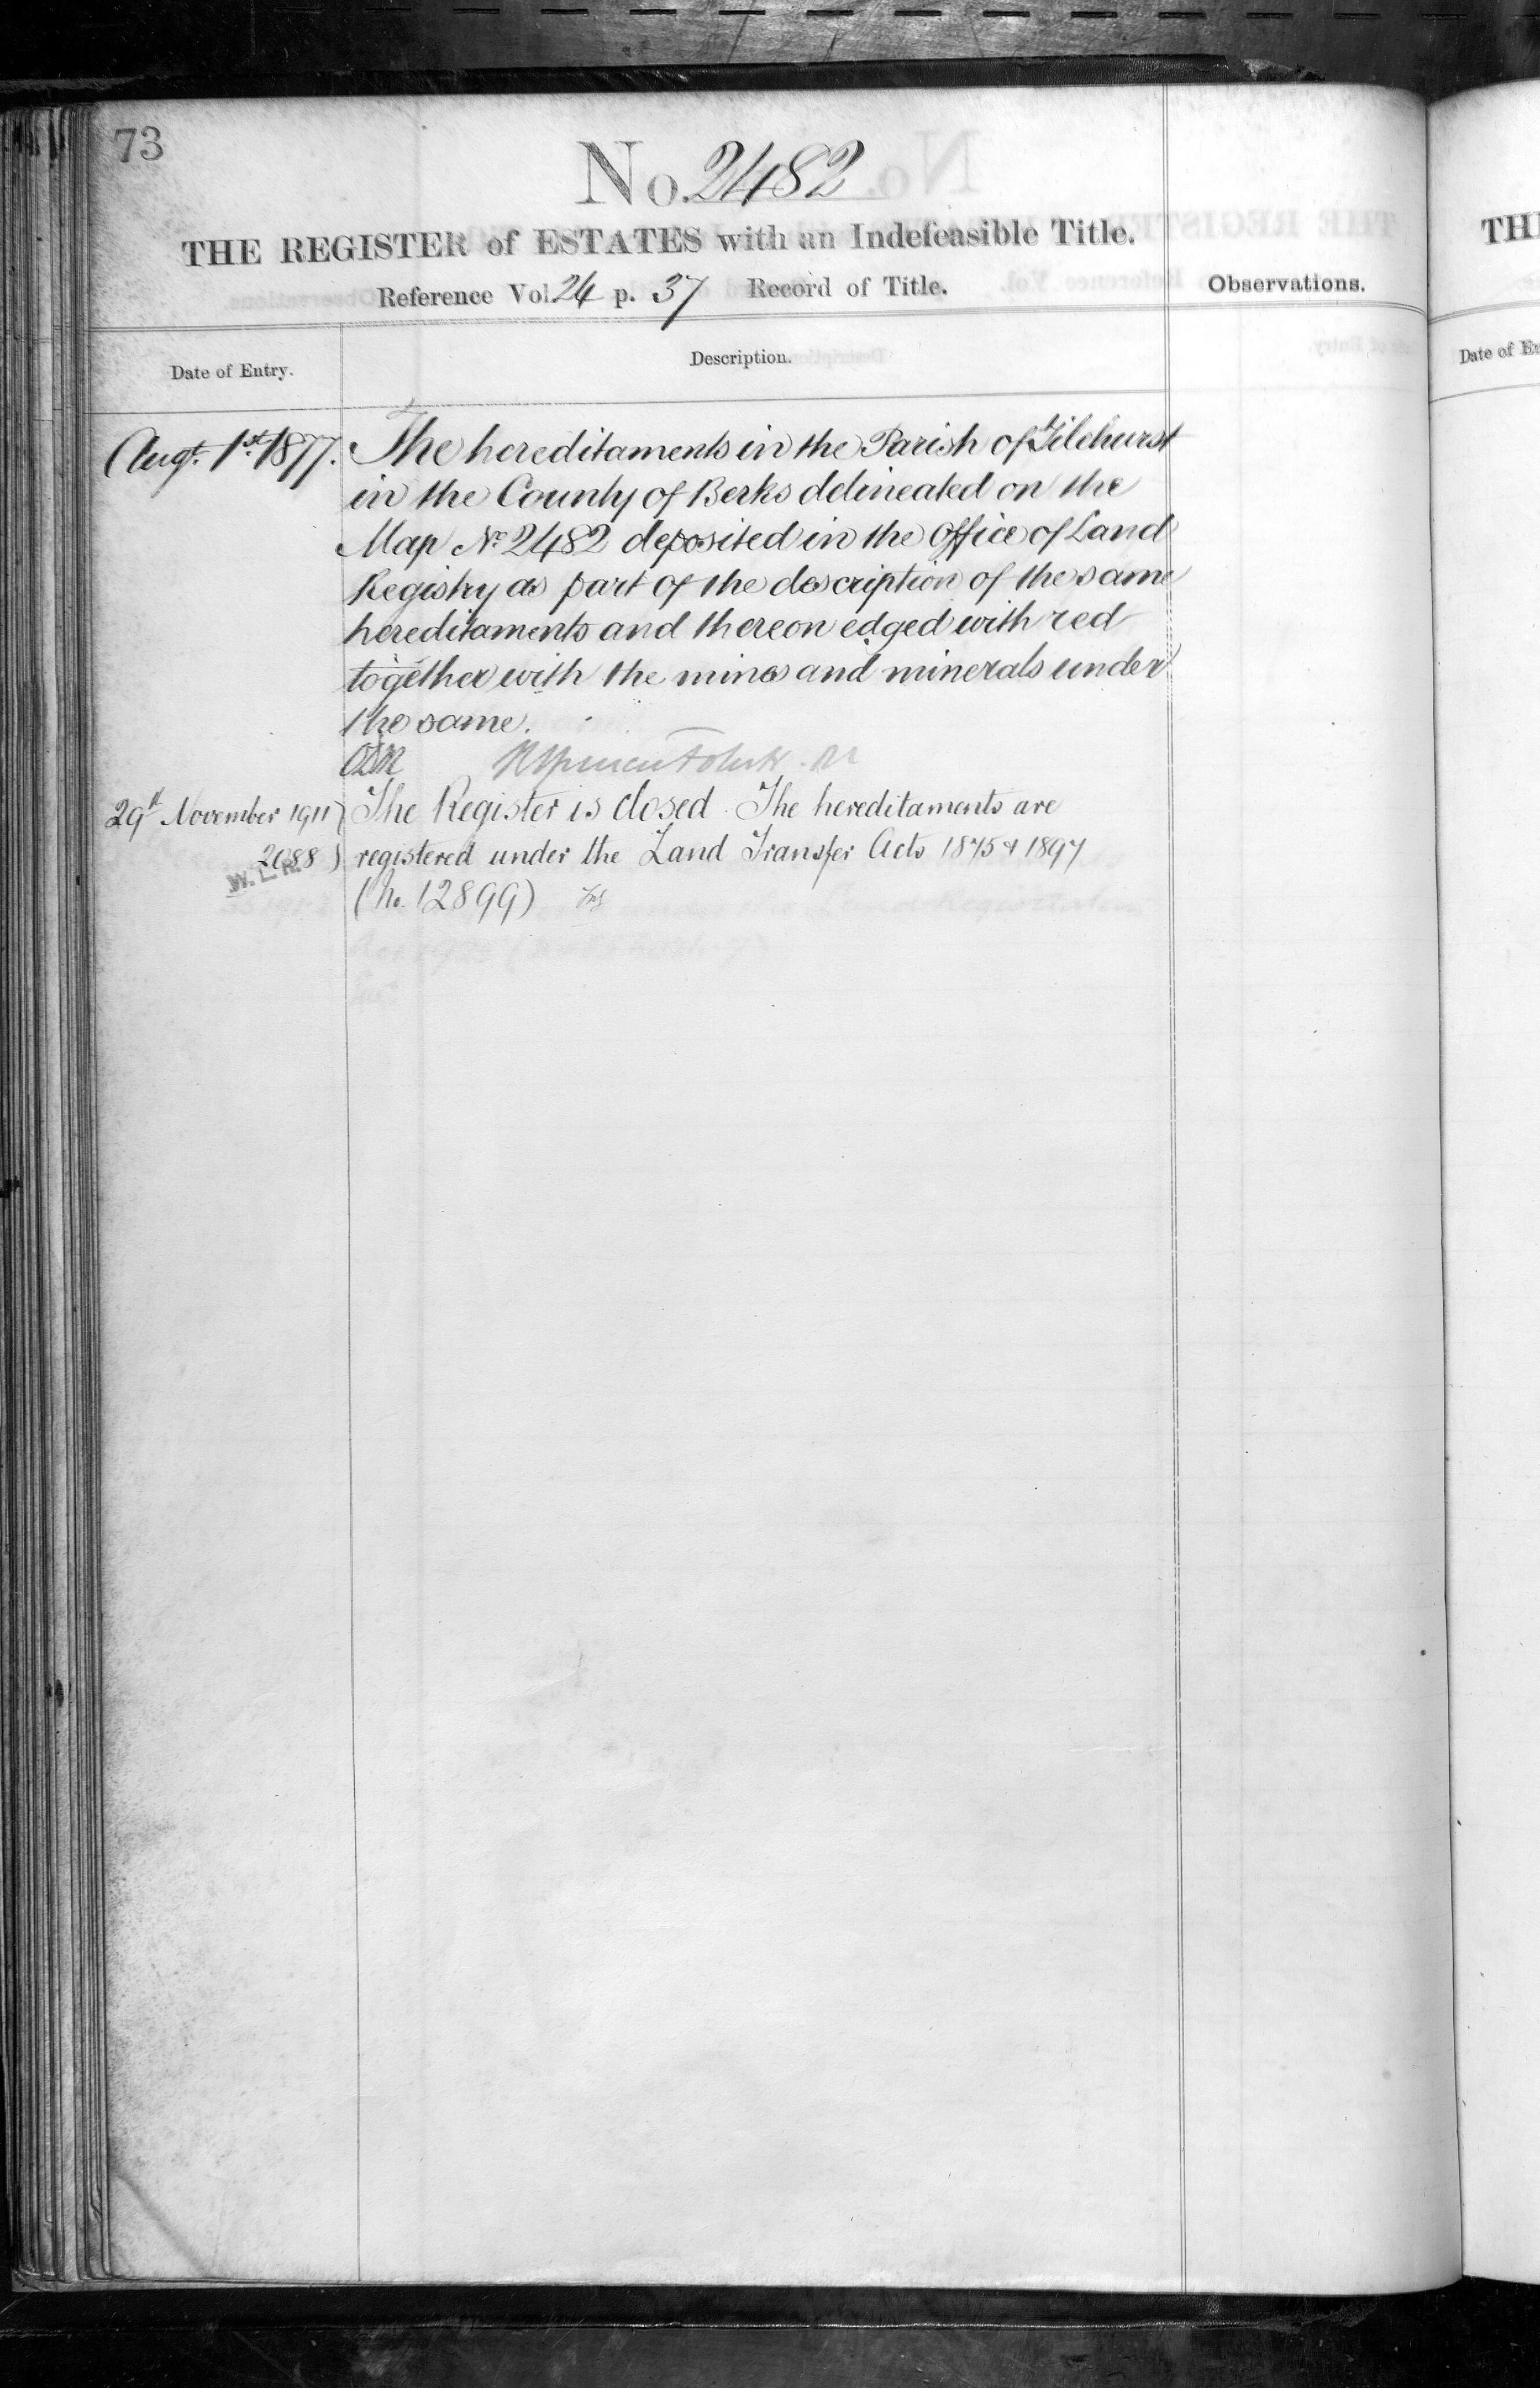 73
No. 2482
THE REGISTER of ESTATES with an Indefeasible Title.
Reference Vol. 24 p. 37 Record of Title.
Observations.
Date of Entry.
Description.
Augt. 1st. 1877. The hereditaments in the Parish of Tilehurst
in the County of Berks delineated on the
Map No. 2482 deposited in the Office of Land
Registry as part of the description of the same
hereditaments and thereon edged with red
together with the mines and minerals under
the same.
29th November 1911 The Register is closed. The hereditaments are
2688 registered under the Land Transfer Acts 1875 & 1897
W. L. R.
(No. 12899)
TH
Date of En